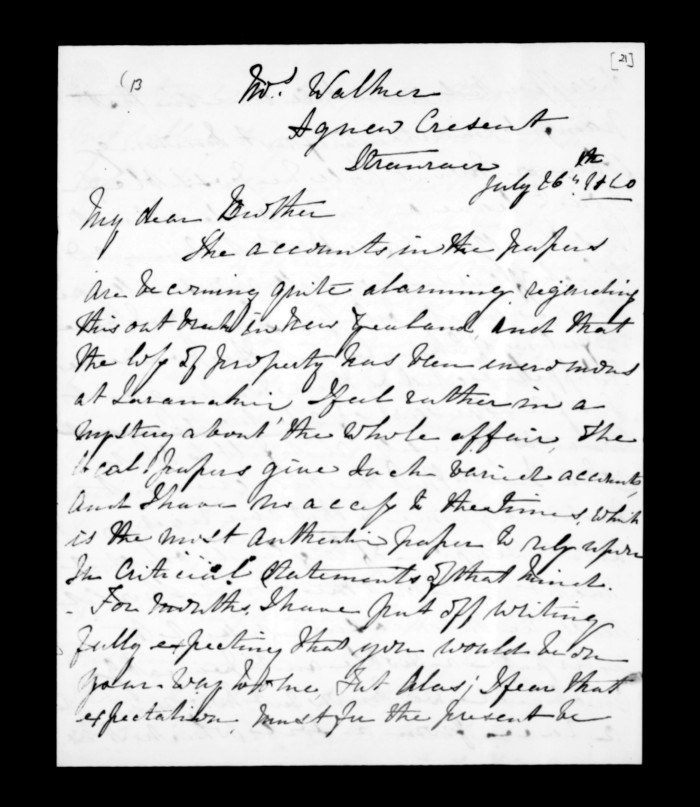 [21]
(13
Mrs Walker
Agnew Cresent.
Stranraer
July 26th 1860
My dear Brother
The accounts in the papers
are becoming quite alarming regarding
this out break in New Zealand, and that
the loss of property has been enormous
at Taranakie I feel rather in a
mystery about the whole affair, the
local papers give such varied accounts,
and I have no access to the times, which
is the most authentic paper to rely upon
In critical statements of that kind.
- For months, I have put off writing
fully expecting that you would be on
your way home, but Alas; I fear that
expectation must for the present be